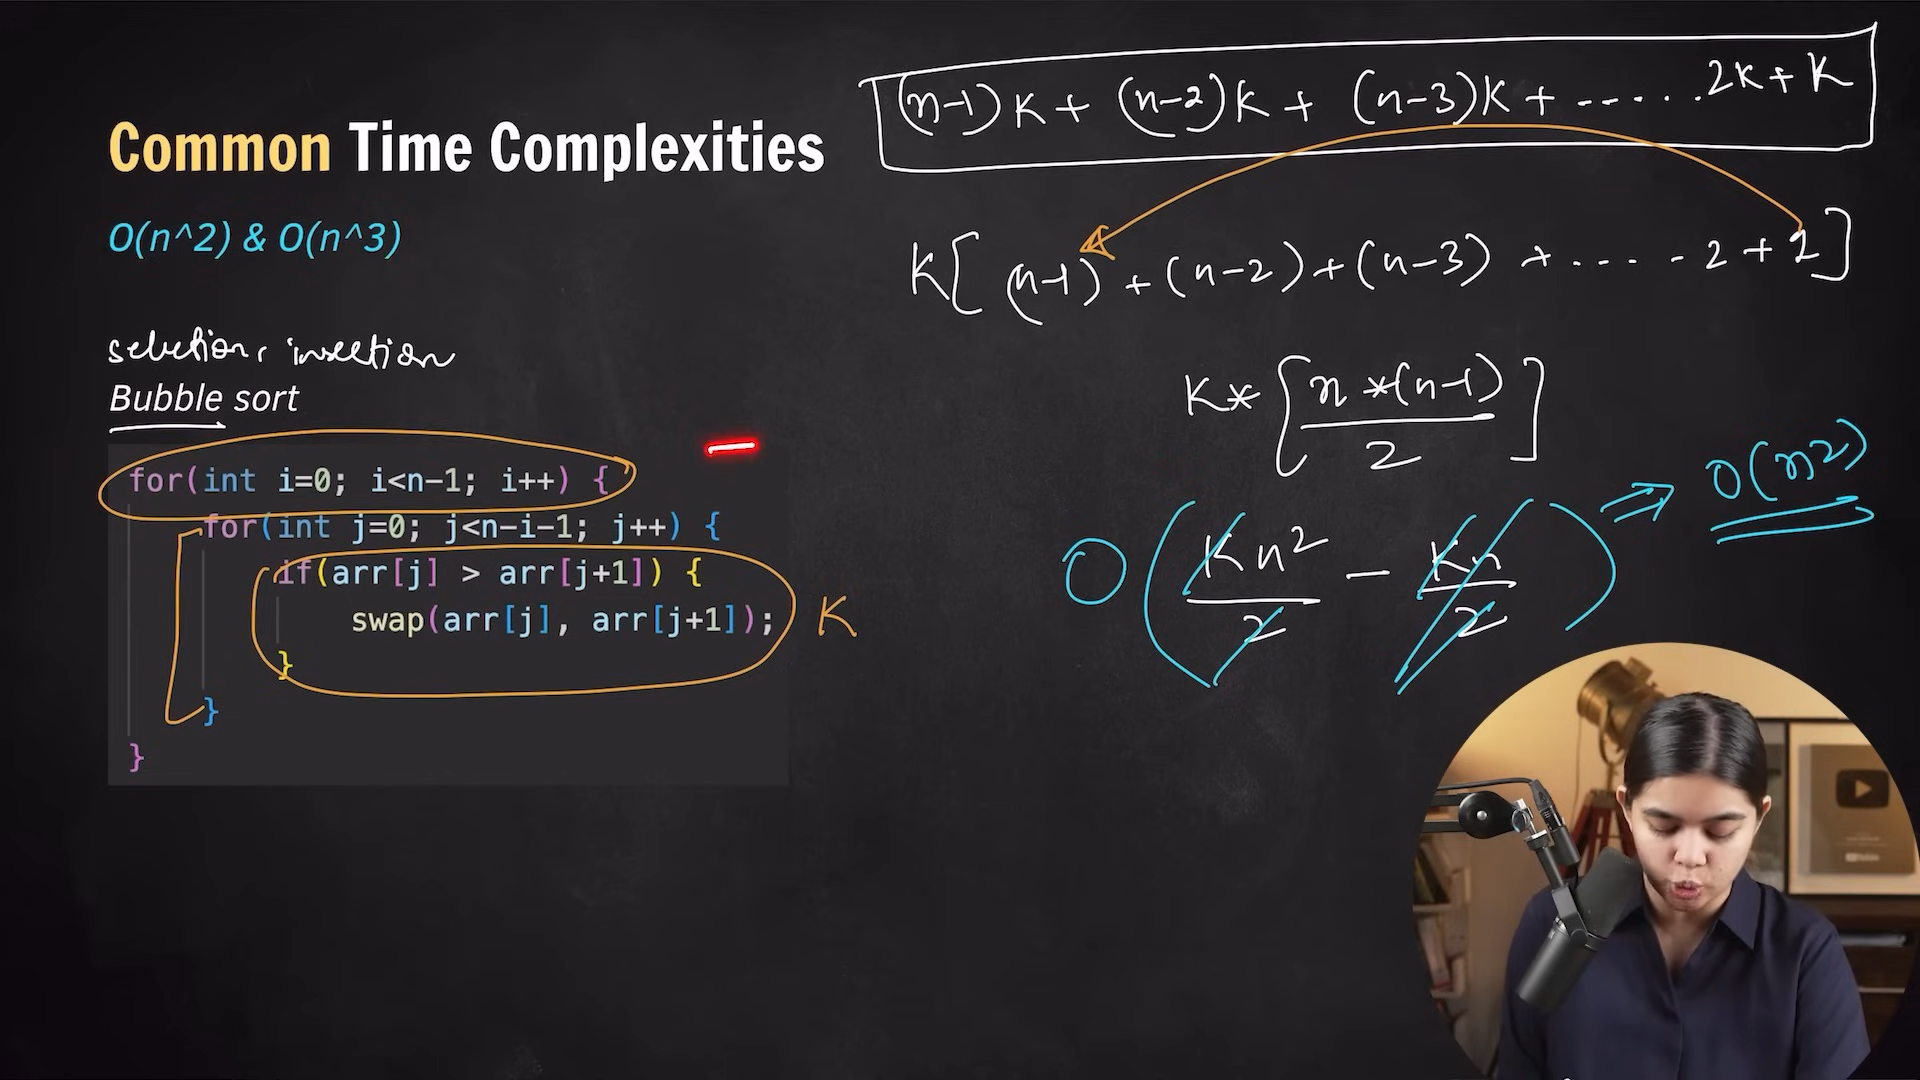 Common Time Complexities
O(n^2) & O(n^3)
selection, insertion
Bubble sort
for(int i=0; i<n-1; i++) {
for(int j=0; j<n-i-1; j++) {
if(arr[j] > arr[j+1]) {
swap(arr[j], arr[j+1]);
}
}
}
K
(n-1)K + (n-2)K + (n-3)K + ...... 2K + K
K[(n-1) + (n-2) + (n-3) + .... - 2 + 1]
K * [n * (n-1) / 2]
O(Kn²/2 - Kn/2) ⇒ O(n²)